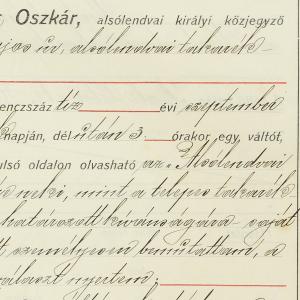 r Oszkár, alsólendvai királyi közjegyző
jos úr, alsólendvai takarék-
enczszáz tíz évi szeptember
napján, dél után 3 órakor egy váltót,
ulsó oldalon olvasható az „Alsólendvai
neki, mint a telepes takarék
határozott kívánságára saját
t személyesen bemutattam, a
választ nyertem;